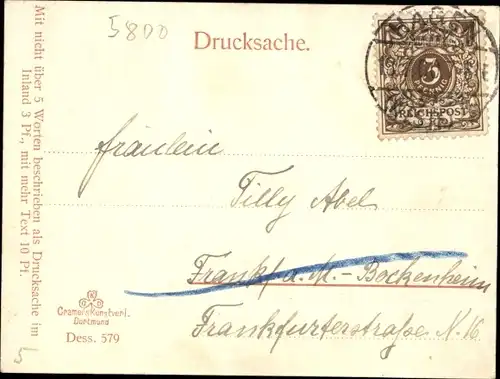 5800
Drucksache.
3
PFENNIG
REICHSPOST
Fräulein
Tilly Abel
Frankf. a. M. - Bockenheim
Frankfurterstraße N. 16
Mit nicht über 5 Worten beschrieben als Drucksache im
Inland 3 Pf., mit mehr Text 10 Pf.
Cramers Kunstverl.
Dortmund
Dess. 579
5